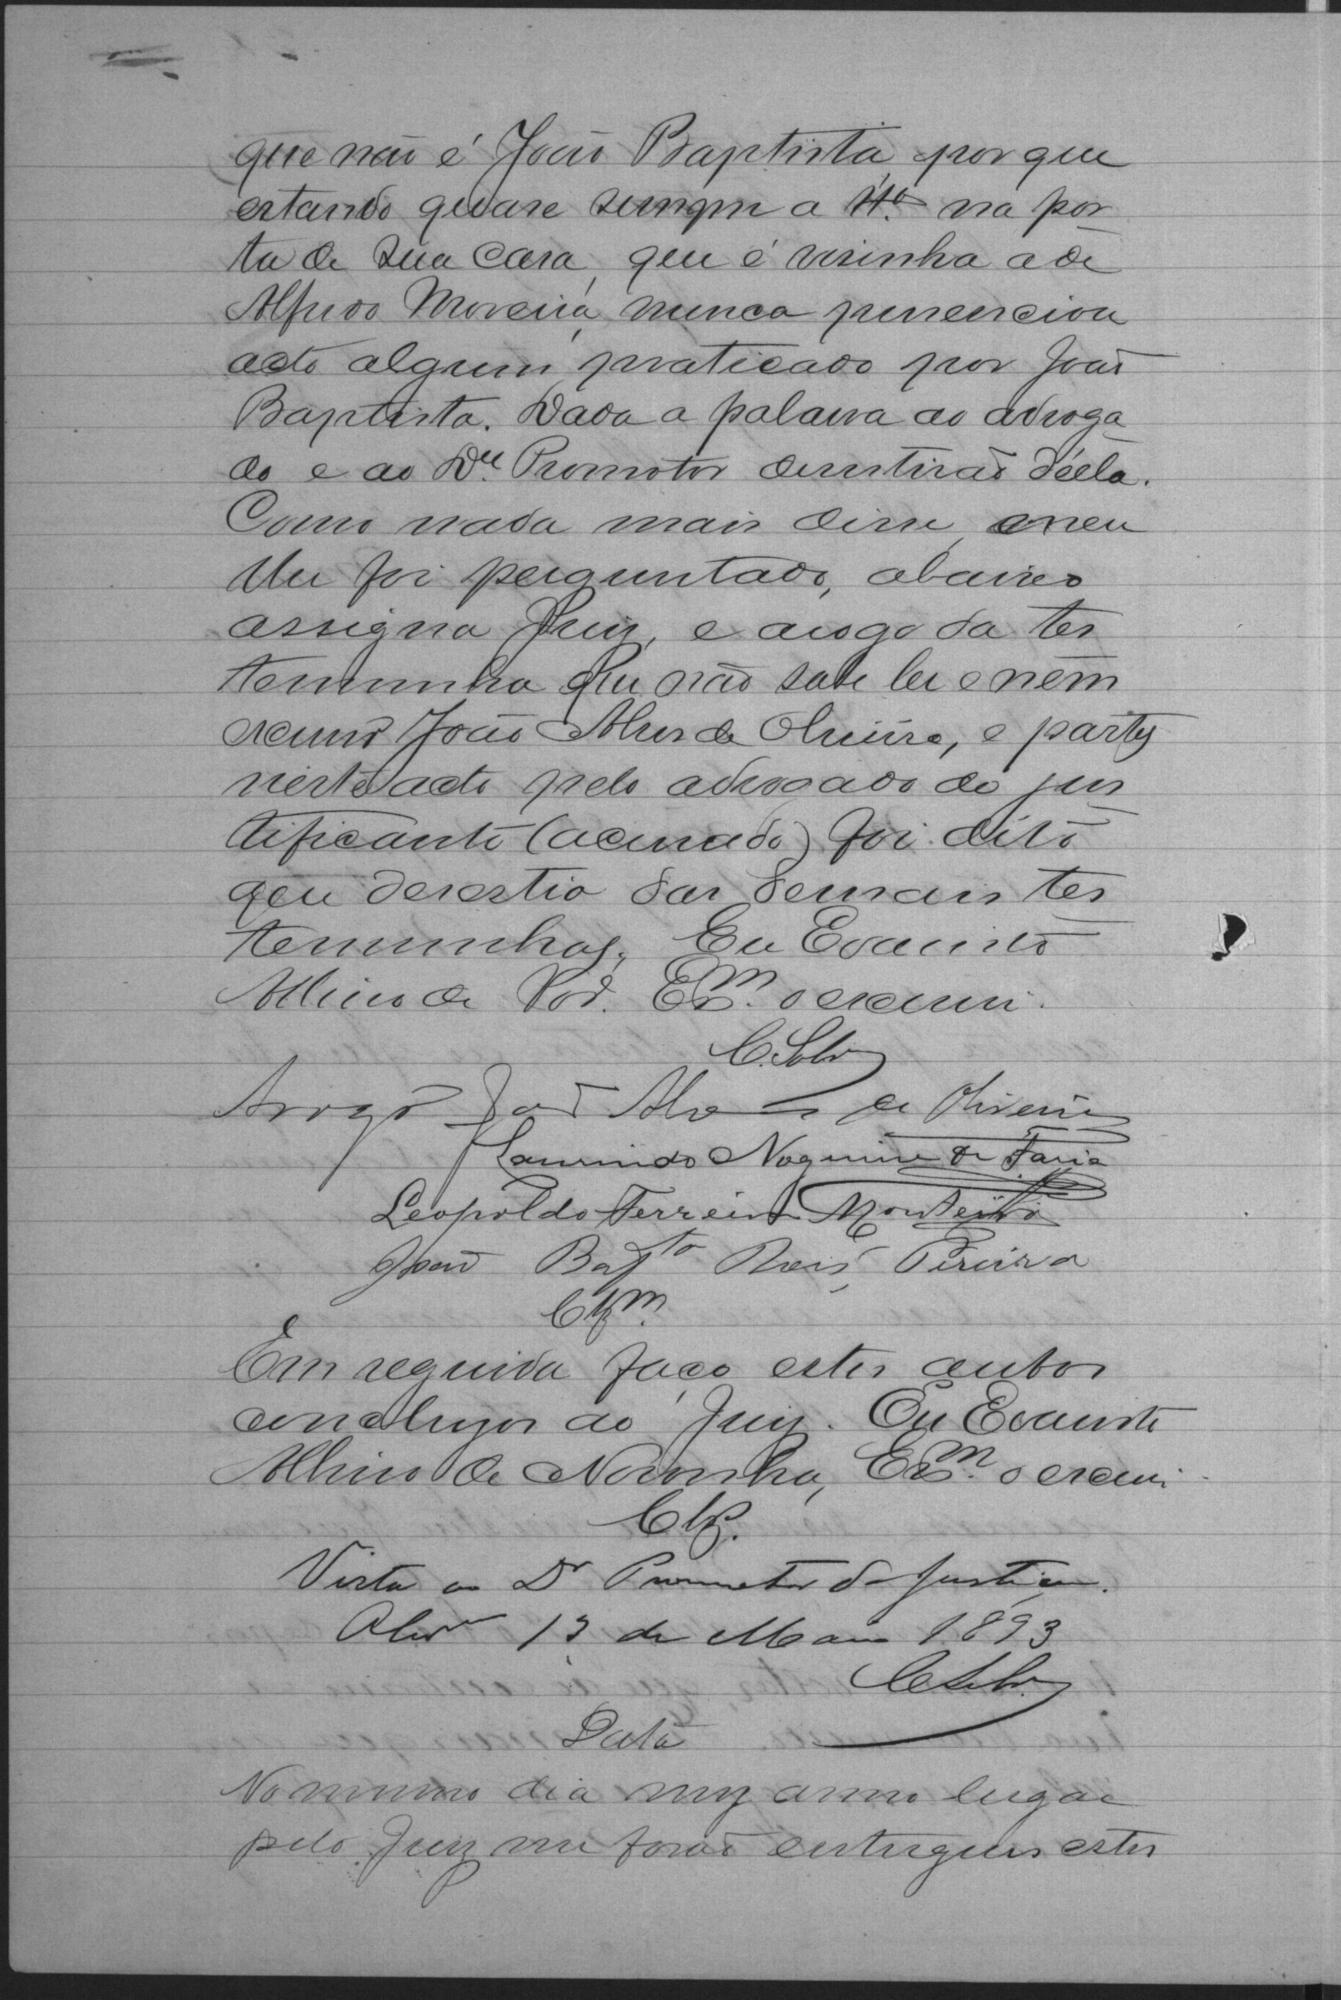 que não é João Baptista, por que
estando quase sempre a tª na por
ta de sua casa, que é visinha a de
Alfredo Moreira, nunca presenciou
acto algum praticado por João
Baptista. Dada a palavra ao advoga
do e ao Dr. Promotor desistirão d'ella.
Como nada mais disse, e nem
lhe foi perguntado, abaixo
assigna Juiz, e a rogo da tes
temunha que não sabe ler e nem
escrever João Alves de Oliveira, e partes
neste acto pelo advogado do jus
tificante (accusado) foi dito
que desestia das demais tes
temunhas. Eu Evaristo
Albino de Nor. Esm. o escrevi.
C. Silva
Arogo João Alves de Oliveira
Laurindo Nogueira de Faria
Leopoldo Ferreira Monteiro
João Bapta Reis Pereira
Clsm.
Em seguida faço estes autos
conclusos ao Juiz. Eu Evaristo
Albino de Noronha, Esm. o escrevi.
Cls.
Vista ao Dr Promotor da Justiça.
13 de Maio 1893
C. Silva
Data
No mesmo dia mez anno lugar
pelo Juiz me forão entregues estes